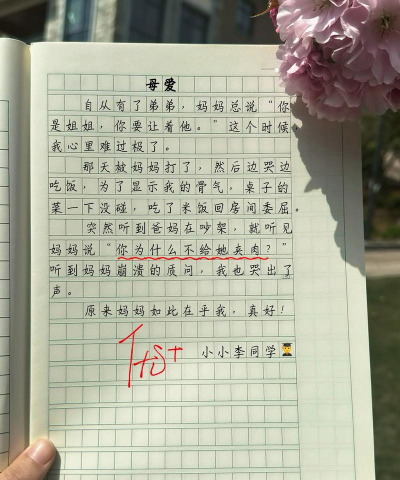 母爱
自从有了弟弟，妈妈总说“你
是姐姐，你要让着他。”这个时候，
我心里难过极了。
那天被妈妈打了，然后边哭边
吃饭，为了显示我的骨气，桌子的
菜一下没碰，吃了米饭回房间委屈。
突然听到爸妈在吵架，就听见
妈妈说“你为什么不给她夹肉？”
听到妈妈崩溃的质问，我也哭出了
声。
原来妈妈如此在乎我，真好！
小小李同学